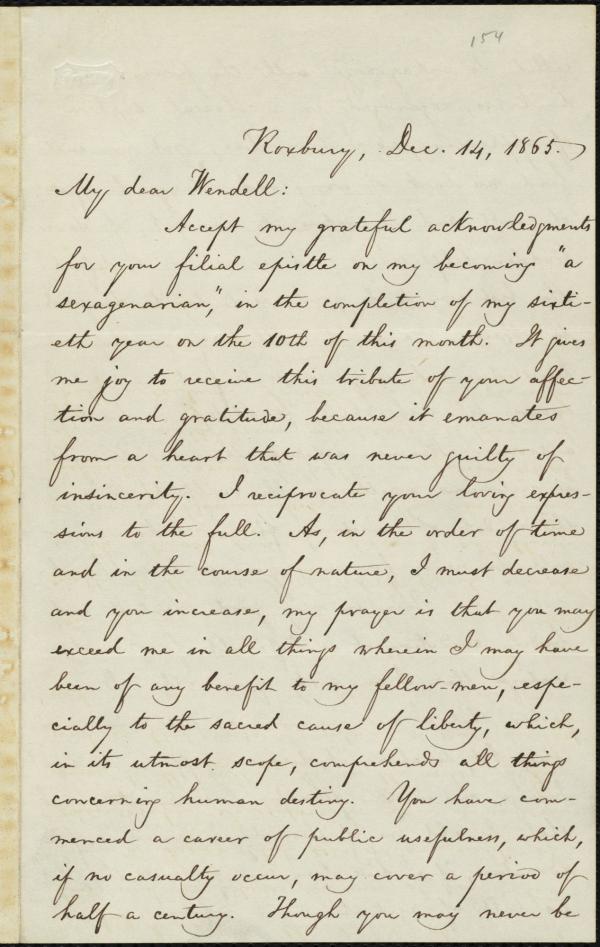 154
Roxbury, Dec. 14, 1865.
My dear Wendell:
Accept my grateful acknowledgments
for your filial epistle on my becoming "a
sexagenarian," in the completion of my sixti-
eth year on the 10th of this month. It gives
me joy to receive this tribute of your affec-
tion and gratitude, because it emanates
from a heart that was never guilty of
insincerity. I reciprocate your loving expres-
sions to the full. As, in the order of time
and in the course of nature, I must decrease
and you increase, my prayer is that you may
exceed me in all things wherein I may have
been of any benefit to my fellow-men, espe-
cially to the sacred cause of liberty, which,
in its utmost scope, comprehends all things
concerning human destiny. You have com-
menced a career of public usefulness, which,
if no casualty occur, may cover a period of
half a century. Though you may never be